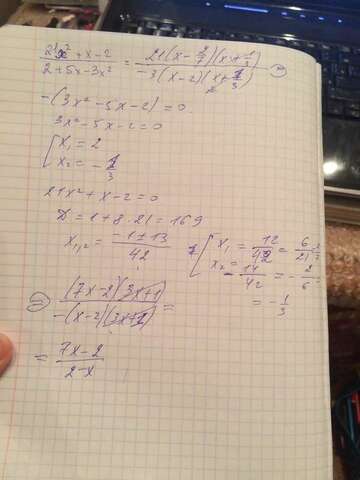 (21x² + x - 2)/(2 + 5x - 3x²) = 21(x - 2/7)(x + 1/3)/(-3(x - 2)(x + 1/3)) =
-(3x² - 5x - 2) = 0
3x² - 5x - 2 = 0
[ x₁ = 2
x₂ = -1/3
21x² + x - 2 = 0
D = 1 + 8·21 = 169
x₁,₂ = (-1 ± 13)/42
[ x₁ = 12/42 = 6/21
x₂ = -14/42 = -2/6
= -1/3
= (7x - 2)(3x + 1)/(-(x - 2)(3x + 1)) =
= (7x - 2)/(2 - x)